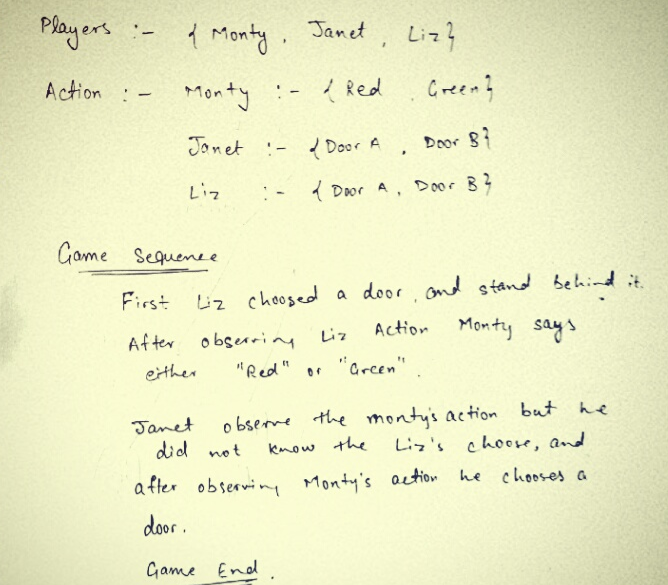 Players :- { Monty, Janet, Liz}
Action :- Monty :- { Red, Green}
Janet :- {Door A, Door B}
Liz :- { Door A, Door B}
Game Sequence
First Liz choosed a door, and stand behind it.
After observing Liz Action Monty says
either "Red" or "Green".
Janet observe the monty's action but he
did not know the Liz's choose, and
after observing Monty's action he chooses a
door.
Game End.